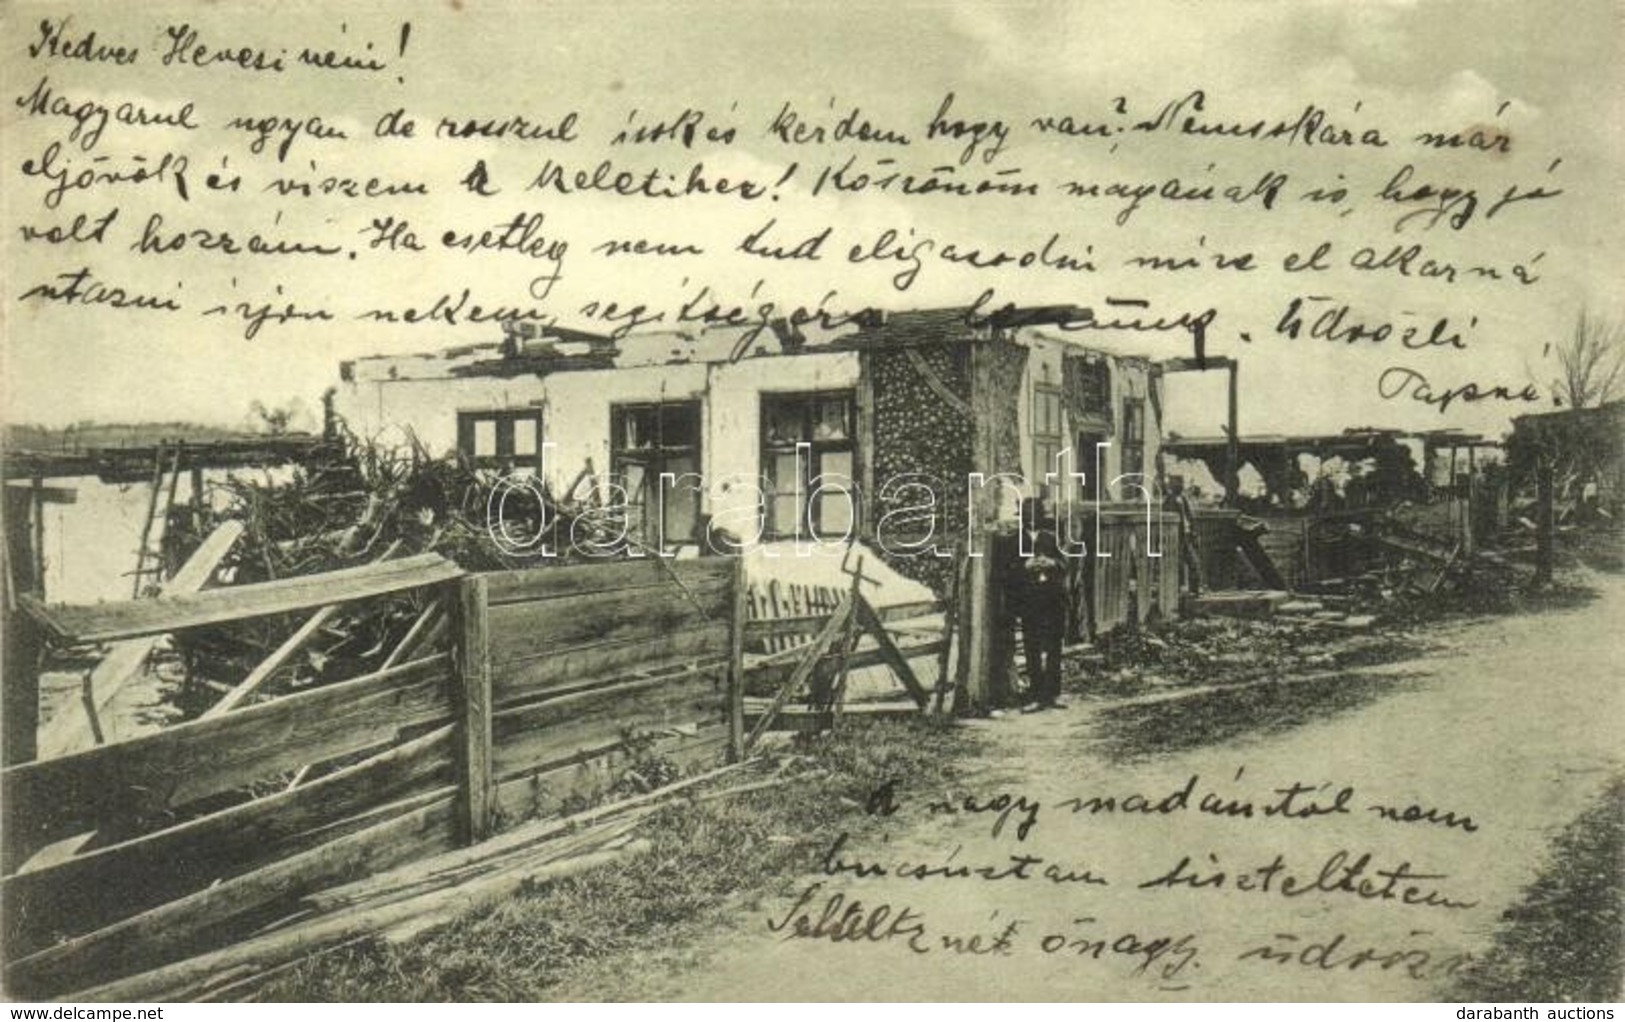 Kedves Hevesi néni!
Magyarul ugyan de rosszul írok és kérdem hogy van? Nemsokára már
eljövök és viszem a keletihez! Köszönöm magának is, hogy jó
volt hozzám. Ha esetleg nem tud eligasodni mire el akarná
utazni irjon nekem, segítségére leszünk. Üdvözli
A nagy madámtól nem
bucsúztam tiszteltetem
nét őnagy. üdvözl
darabanth
delcampe.net
darabanth auctions